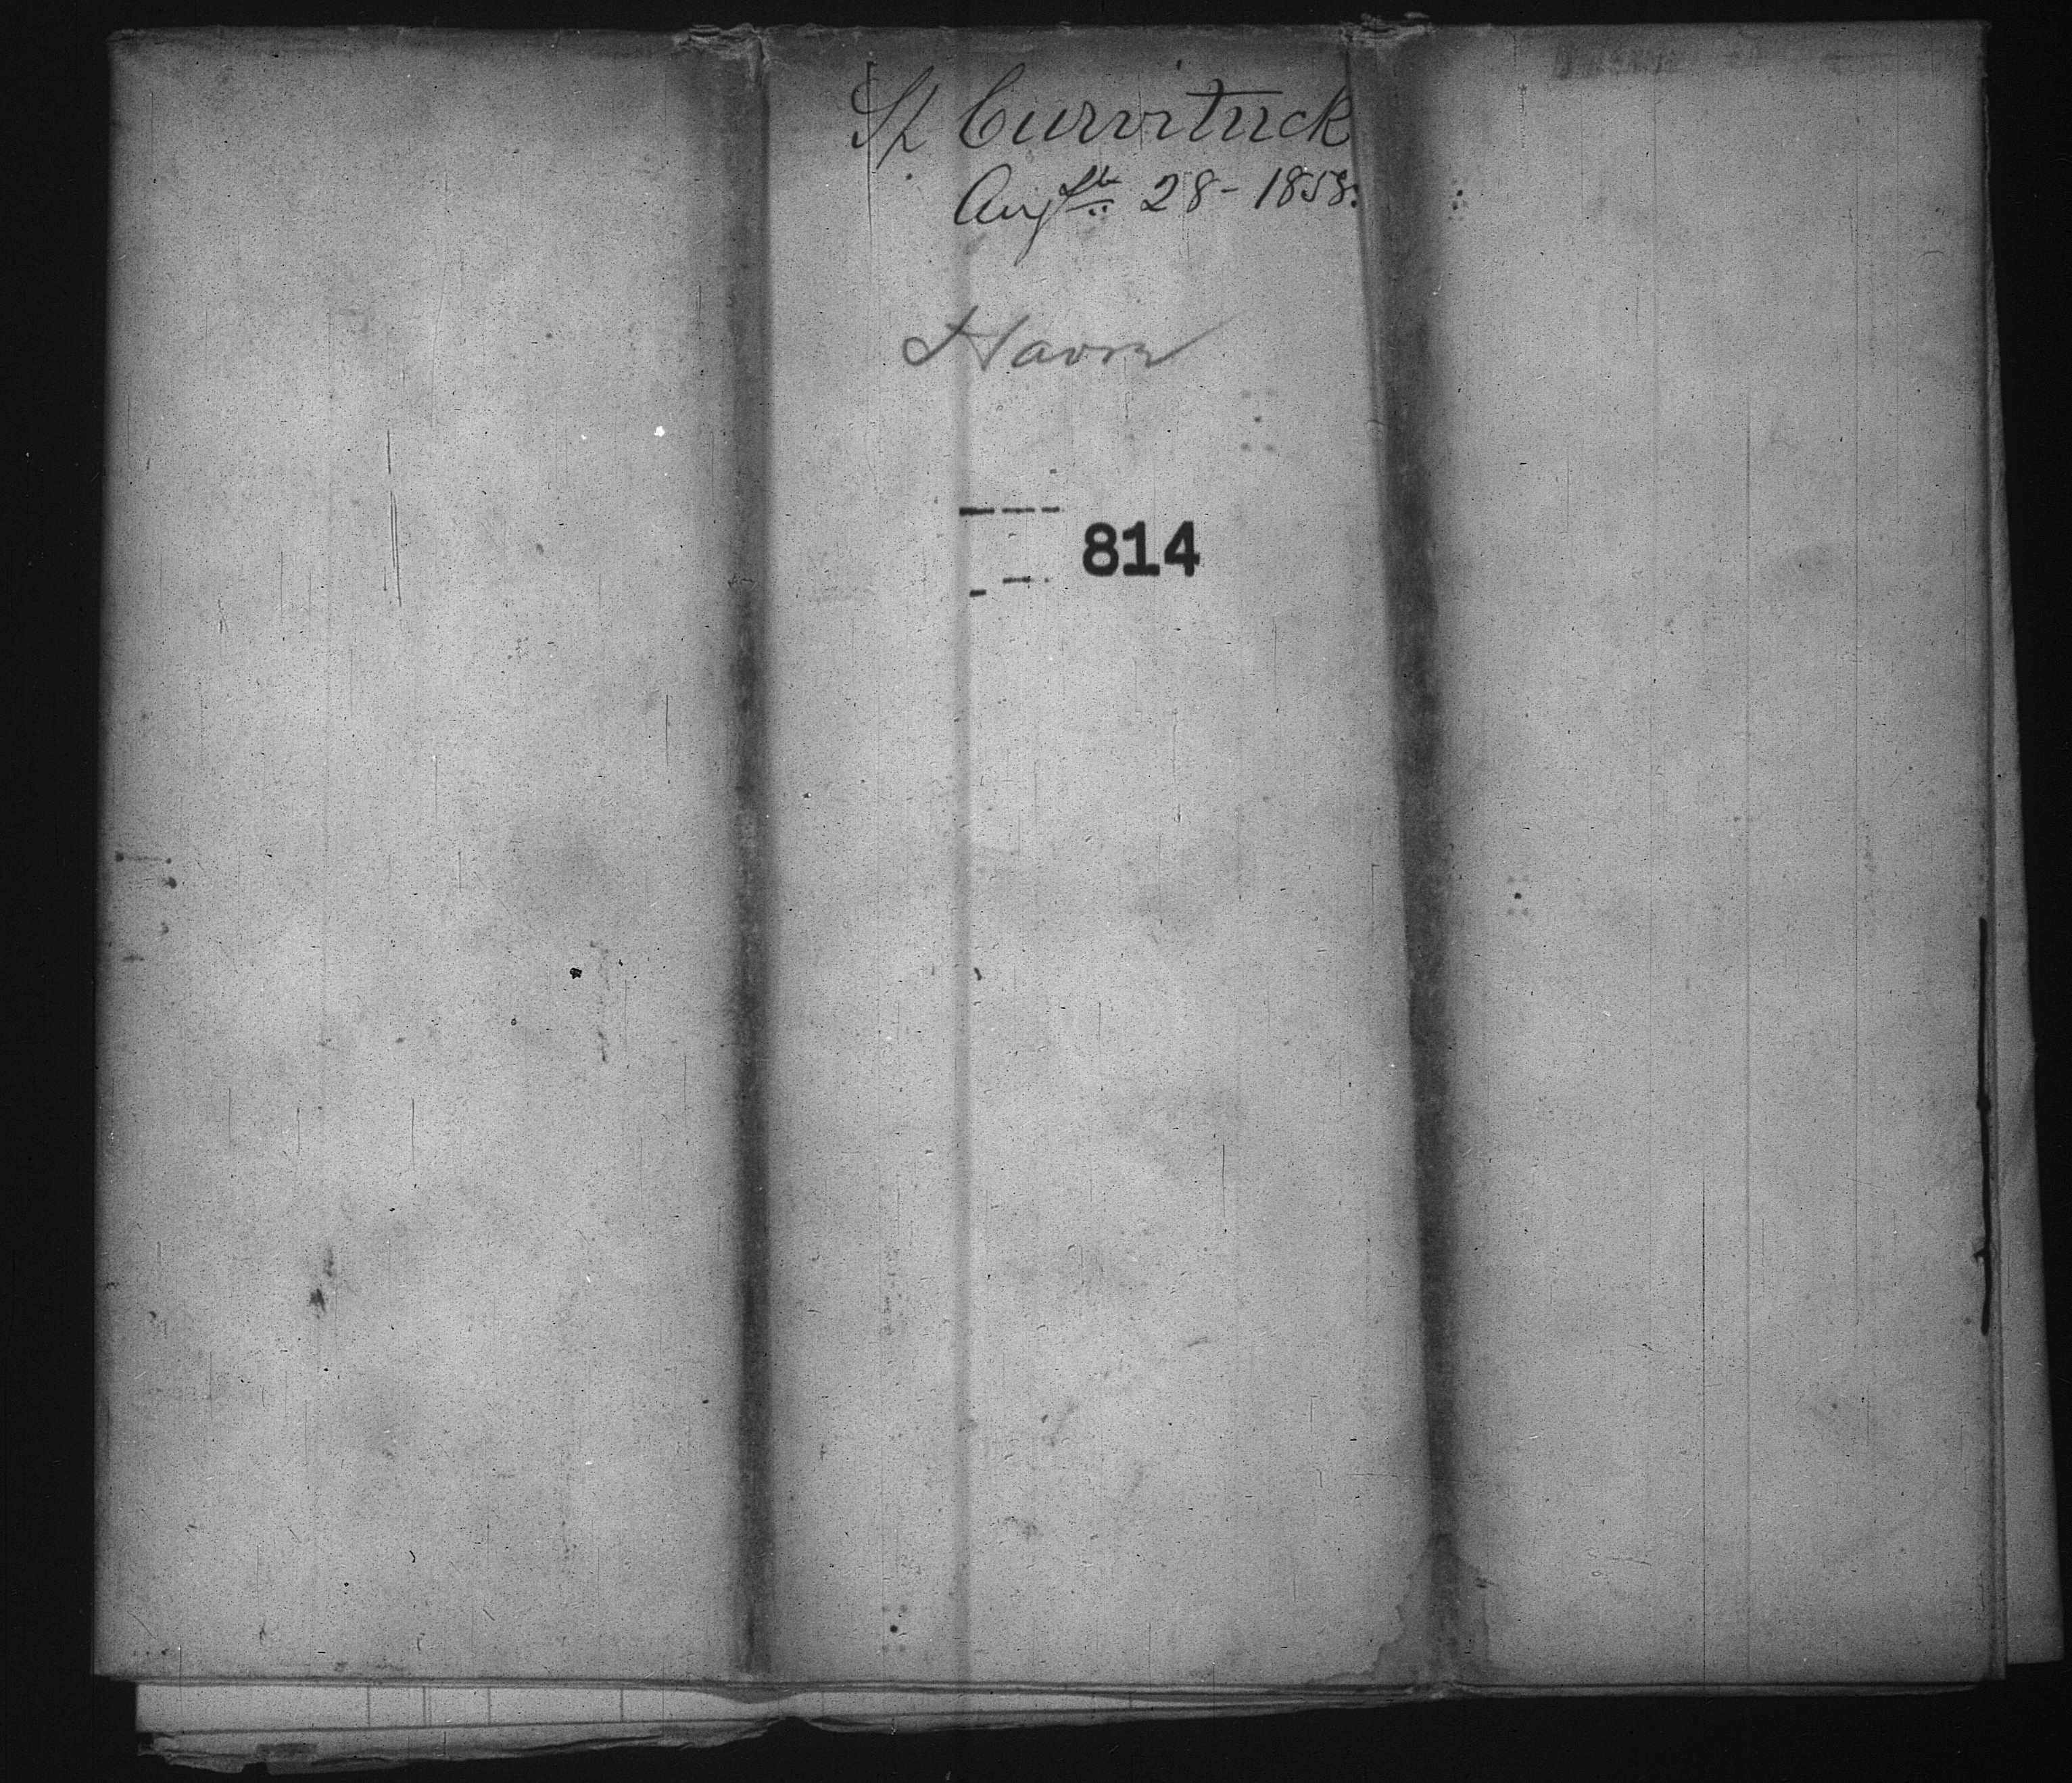 Sh Curvituck
Augst 28 - 1858.
Havre
814